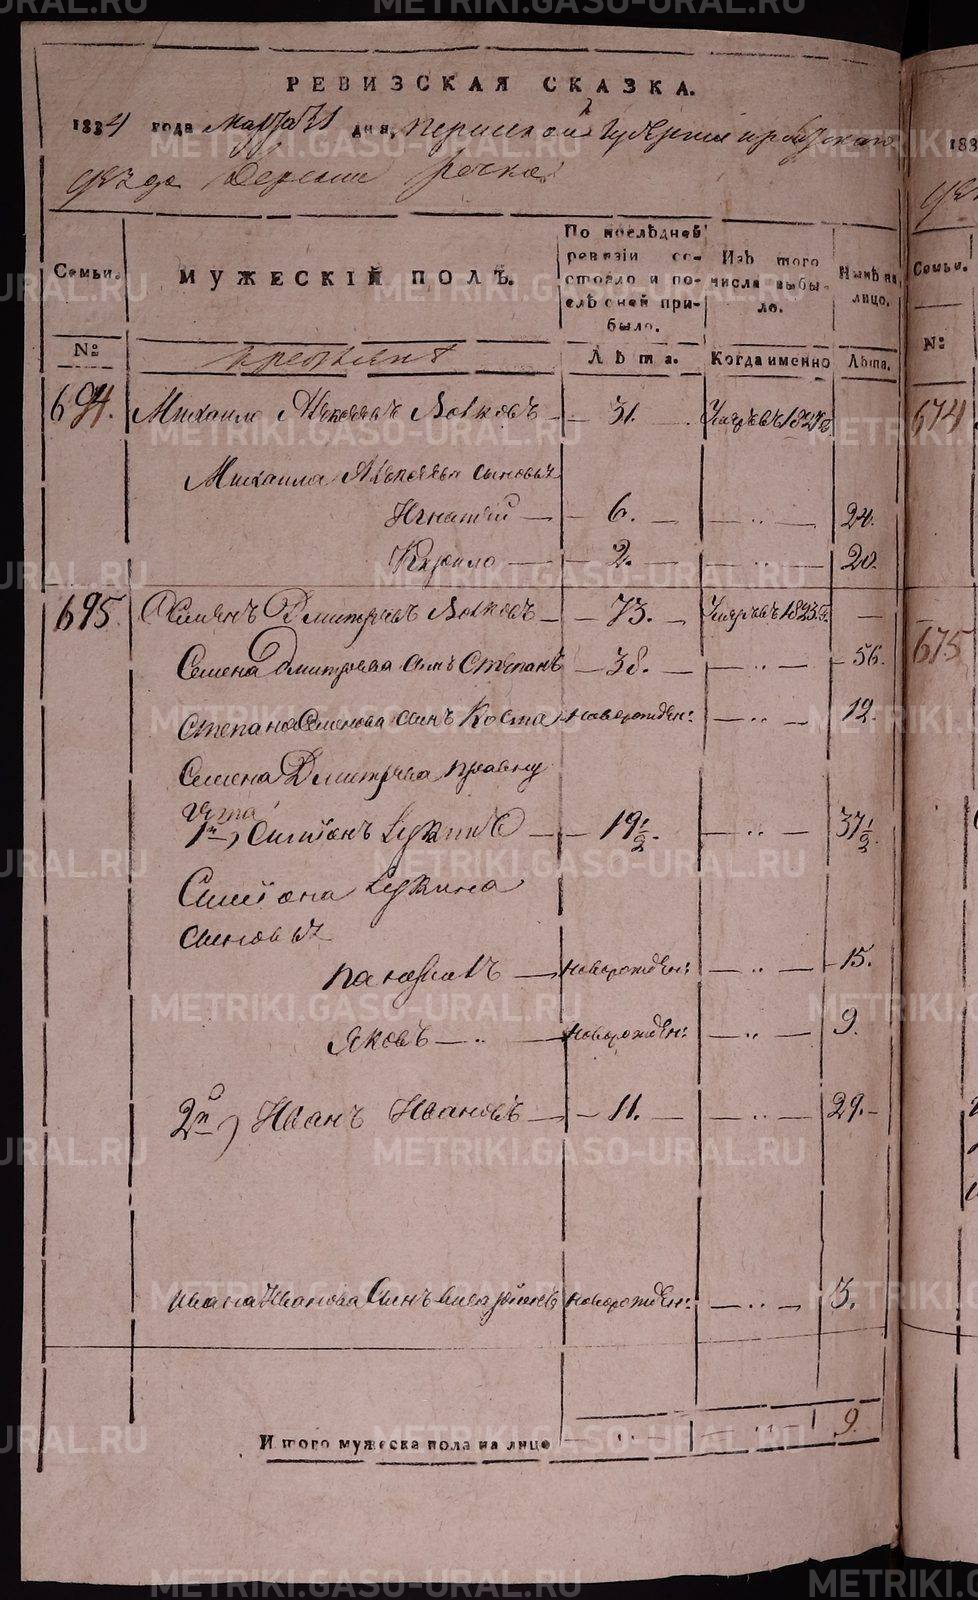 РЕВИЗСКАЯ СКАЗКА.
1834 года марта 31 дня, Пермской Губернии Ирбитского
уезда деревни Речкалов
Семьи. МУЖЕСКІЙ ПОЛЪ. По послѣдней ревизіи состояло и послѣ оней прибыло. Изъ того числа выбыло. Нынѣ на лицо.
№ крестьяне Лѣта. Когда именно Лѣта.
694. Михаило Алексеевъ Волковъ 31. Умеръ въ 1827
Михаила Алексеева сыновья
Игнатій 6. 24.
Кирило 2. 20.
695. Семенъ Дмитревъ Волковъ 73. Умеръ въ 1823 г.
Семена Дмитрева сынъ Степанъ 38. 56.
Степана Семенова сынъ Коста новорожден: 12.
Семена Дмитрева правну
чата
1й) Симіонъ Лукинъ 19½. 37½.
Симіона Лукина
сыновья
Панфилъ новорожден: 15.
Яковъ новорожден: 9.
2й) Иванъ Ивановъ 11. 29.
Ивана Иванова сынъ новорожден: 3.
Итого мужеска пола на лице 9.
183
Семьи.
№
674
675
METRIKI.GASO-URAL.RU